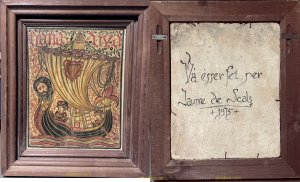 Và ésser fet per
Jaume de Scals
+ 1975 +